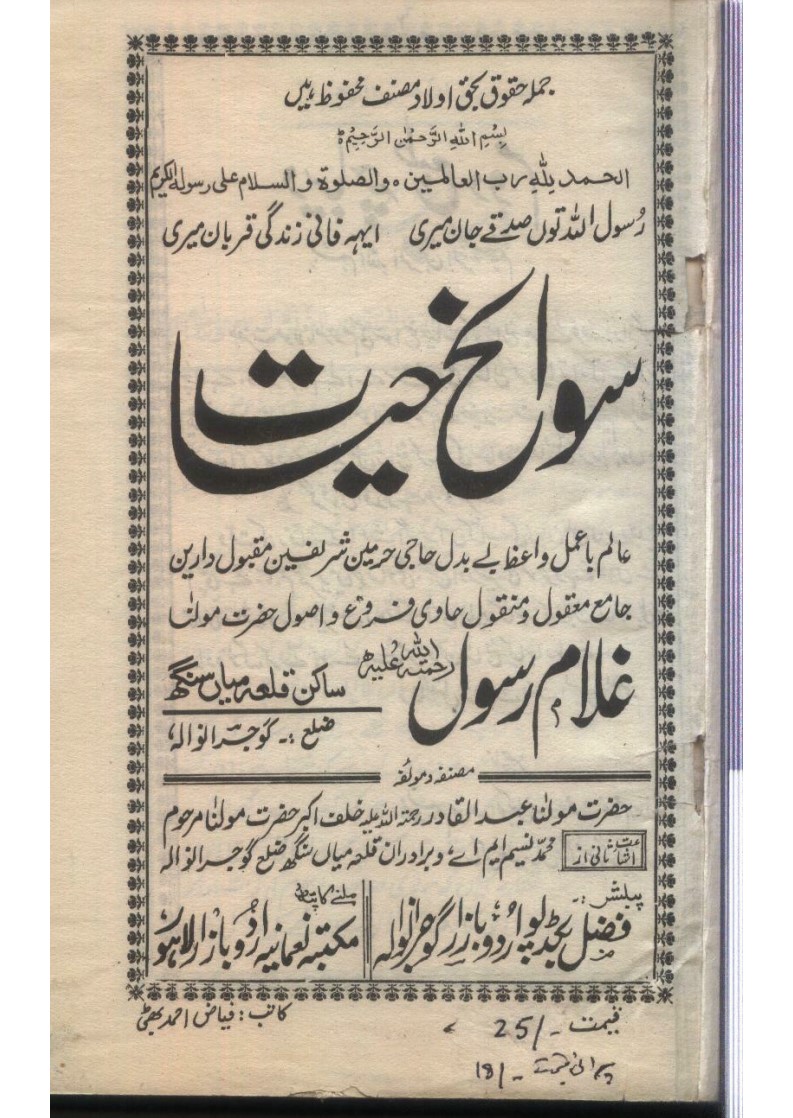 جملہ حقوق بحق اولاد مصنف محفوظ ہیں
بسم اللہ الرحمٰن الرحیم ط
الحمد للہ رب العالمین ہ والصلوۃ والسلام علی رسولہ الکریم
رسول اللہ توں صدقے جان میری ایہہ فانی زندگی قربان میری
سوانح حیات
عالم باعمل واعظ بے بدل حاجی حرمین شریفین مقبول دارین
جامع معقول و منقول حاوی فروع و اصول حضرت مولٰنا
غلام رسول رحمتہ اللہ علیہ
ساکن قلعہ میاں سنگھ
ضلع :۔ گوجرانوالہ
مصنفہ و مولفہ
حضرت مولٰنا عبدالقادر رحمتہ اللہ علیہ خلف اکبر حضرت مولٰنا مرحوم
اشاعت ثانی از محمد نسیم ایم اے، و برادران قلعہ میاں سنگھ ضلع گوجرانوالہ
پبلشر :۔
فضل بکڈپو اردو بازار گوجرانوالہ
ملنے کا پتہ
مکتبہ نعمانیہ اردو بازار لاہور
کاتب : فیاض احمد بھٹی
قیمت ۔/25
پرانی قیمت ۔/18